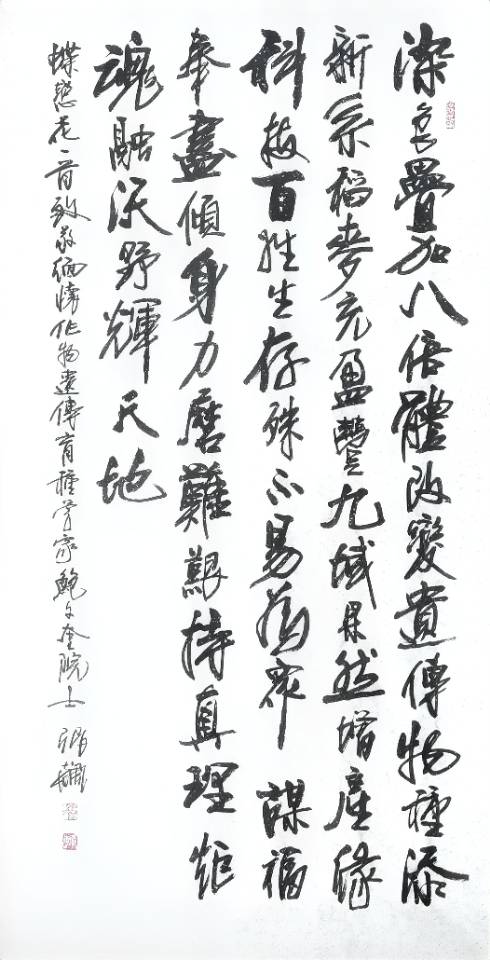 染色疊加八倍體改變遺傳物種添
新系稻麥充盈豐九域果然增產緣
科技百姓生存殊不易為眾謀福
奉盡傾身力磨難艱持真理炬
魂融沃野輝天地
蝶戀花一首致敬緬懷作物遺傳育種學家鮑文奎院士 張